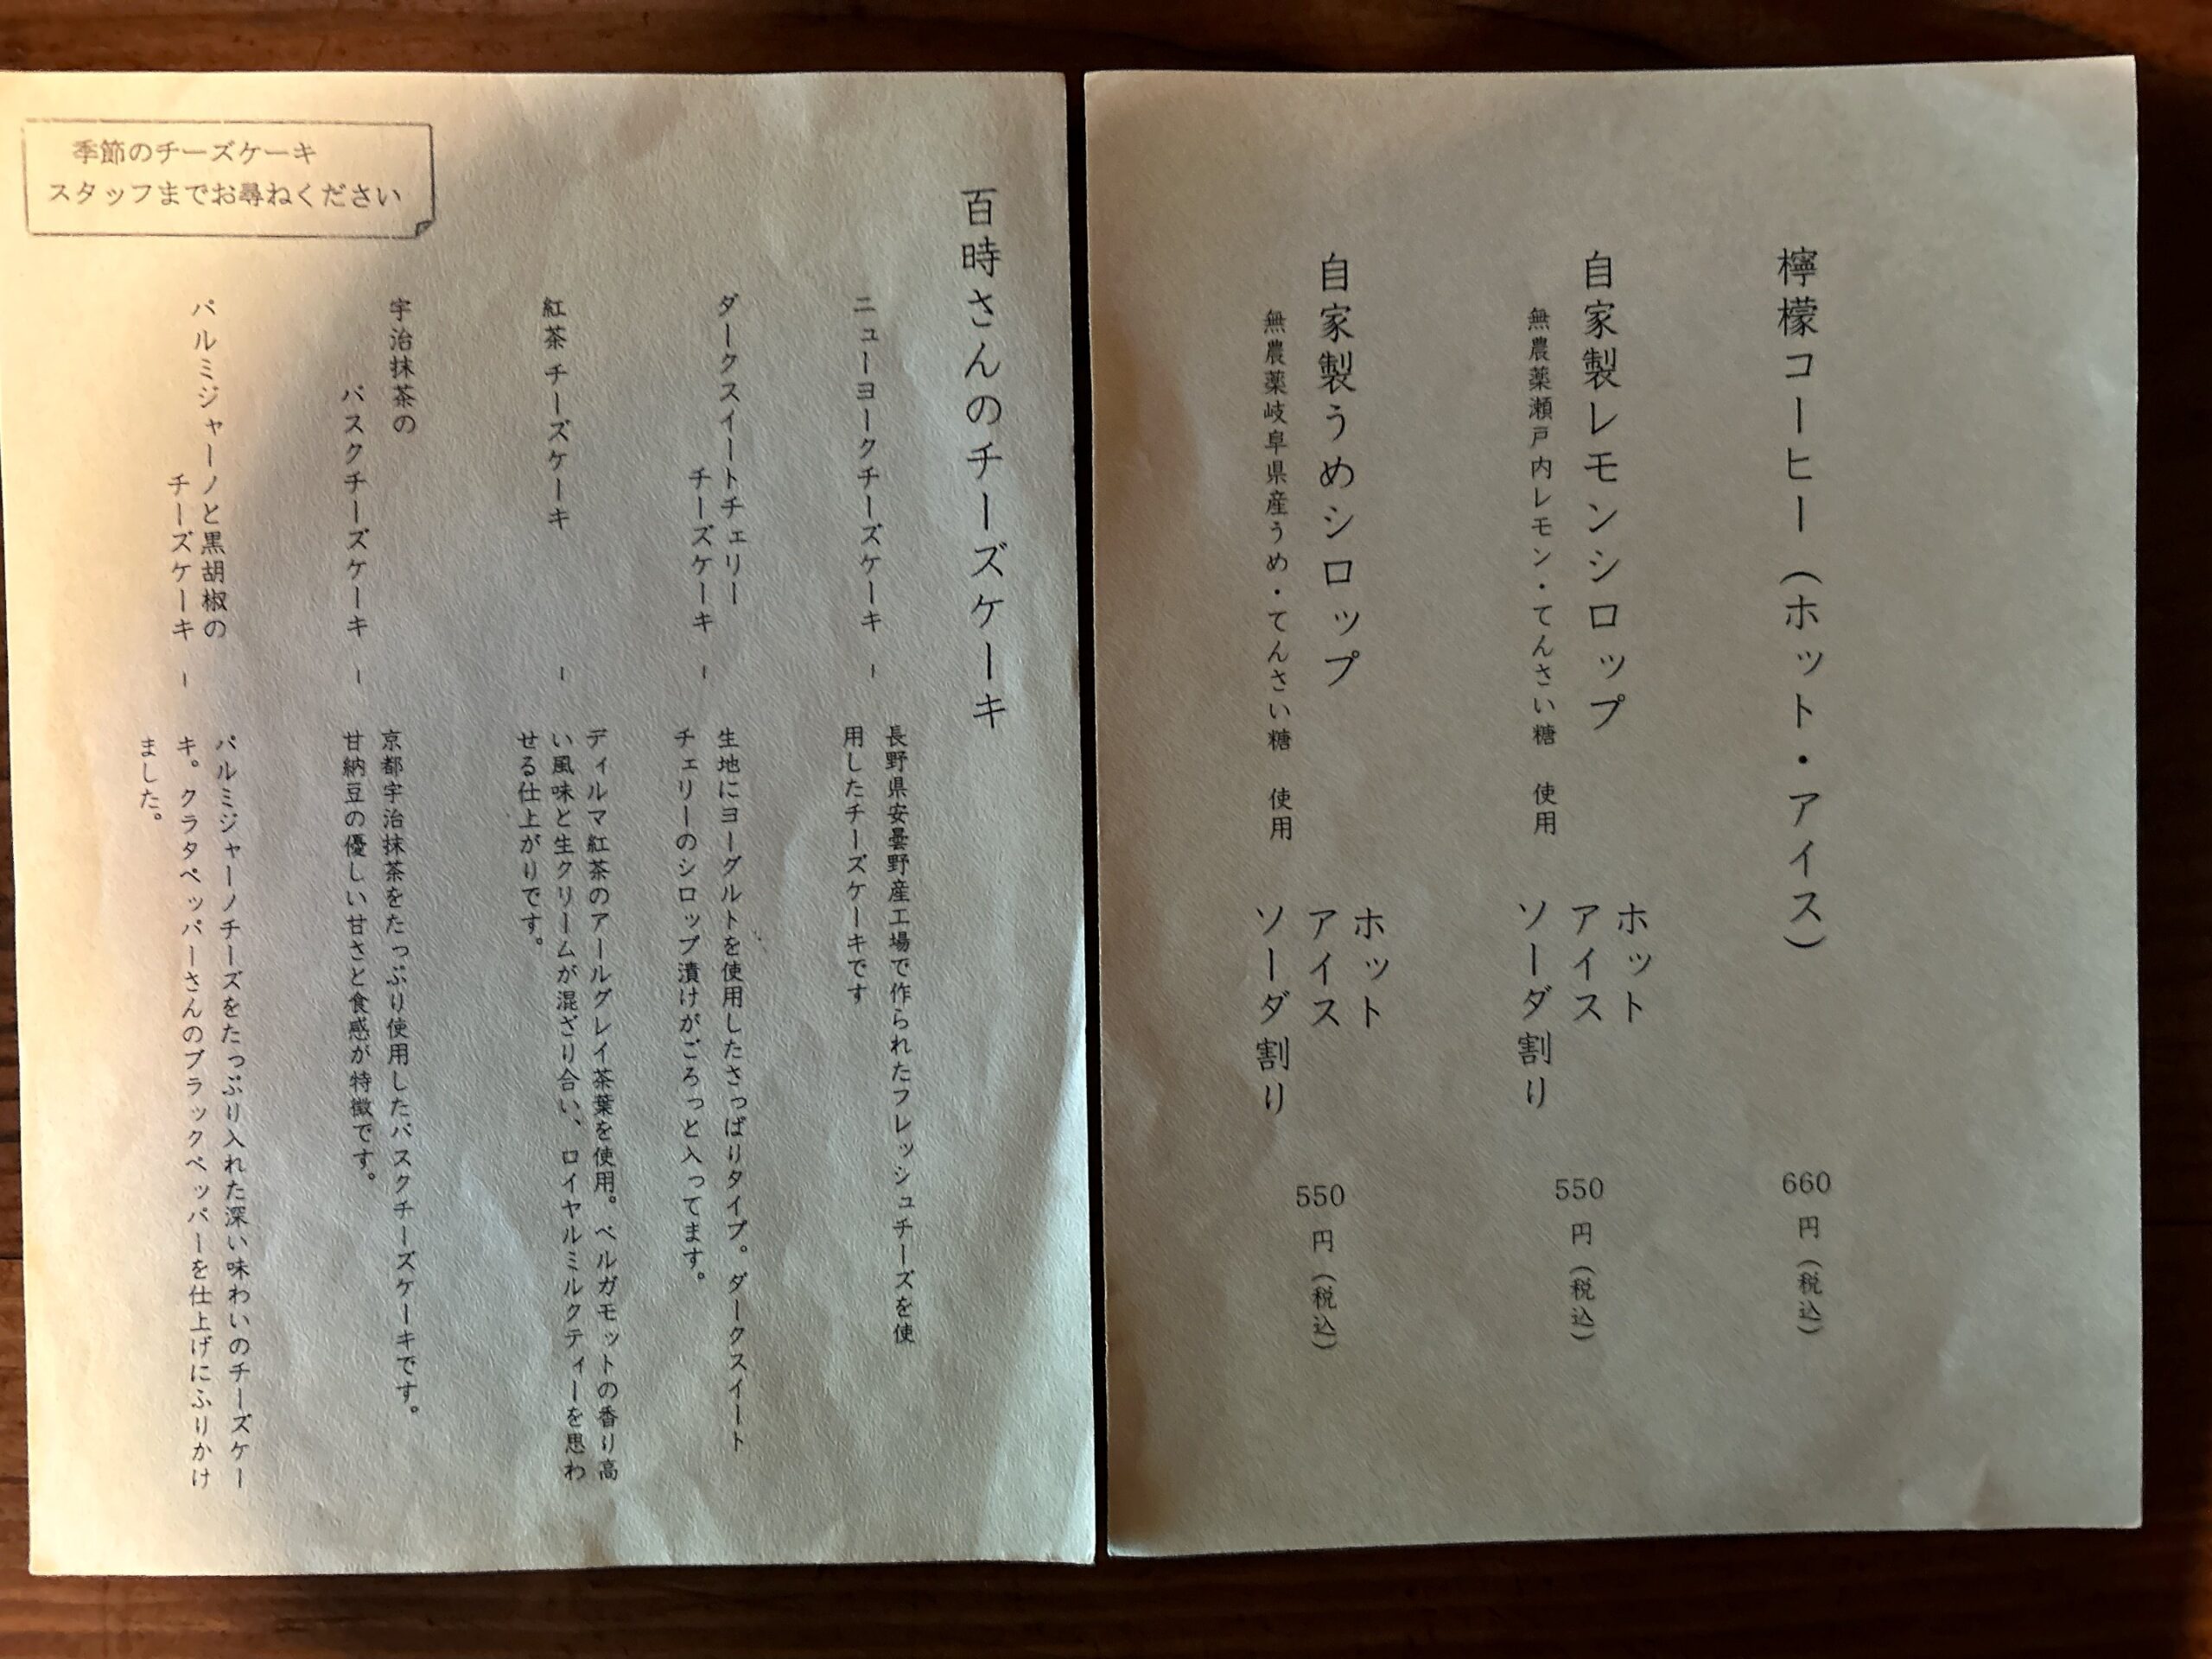 檸檬コーヒー（ホット・アイス）
660円（税込）
自家製レモンシロップ
無農薬瀬戸内レモン・てんさい糖　使用
ホット
アイス
ソーダ割り
550円（税込）
自家製うめシロップ
無農薬岐阜県産うめ・てんさい糖　使用
ホット
アイス
ソーダ割り
550円（税込）
百時さんのチーズケーキ
ニューヨークチーズケーキ ー
長野県安曇野産工場で作られたフレッシュチーズを使
用したチーズケーキです
ダークスイートチェリー
チーズケーキ ー
生地にヨーグルトを使用したさっぱりタイプ。ダークスイート
チェリーのシロップ漬けがごろっと入ってます。
紅茶チーズケーキ ー
ディルマ紅茶のアールグレイ茶葉を使用。ベルガモットの香り高
い風味と生クリームが混ざり合い、ロイヤルミルクティーを思わ
せる仕上がりです。
宇治抹茶の
バスクチーズケーキ ー
京都宇治抹茶をたっぷり使用したバスクチーズケーキです。
甘納豆の優しい甘さと食感が特徴です。
パルミジャーノと黒胡椒の
チーズケーキ ー
パルミジャーノチーズをたっぷり入れた深い味わいのチーズケー
キ。クラタペッパーさんのブラックペッパーを仕上げにふりかけ
ました。
季節のチーズケーキ
スタッフまでお尋ねください